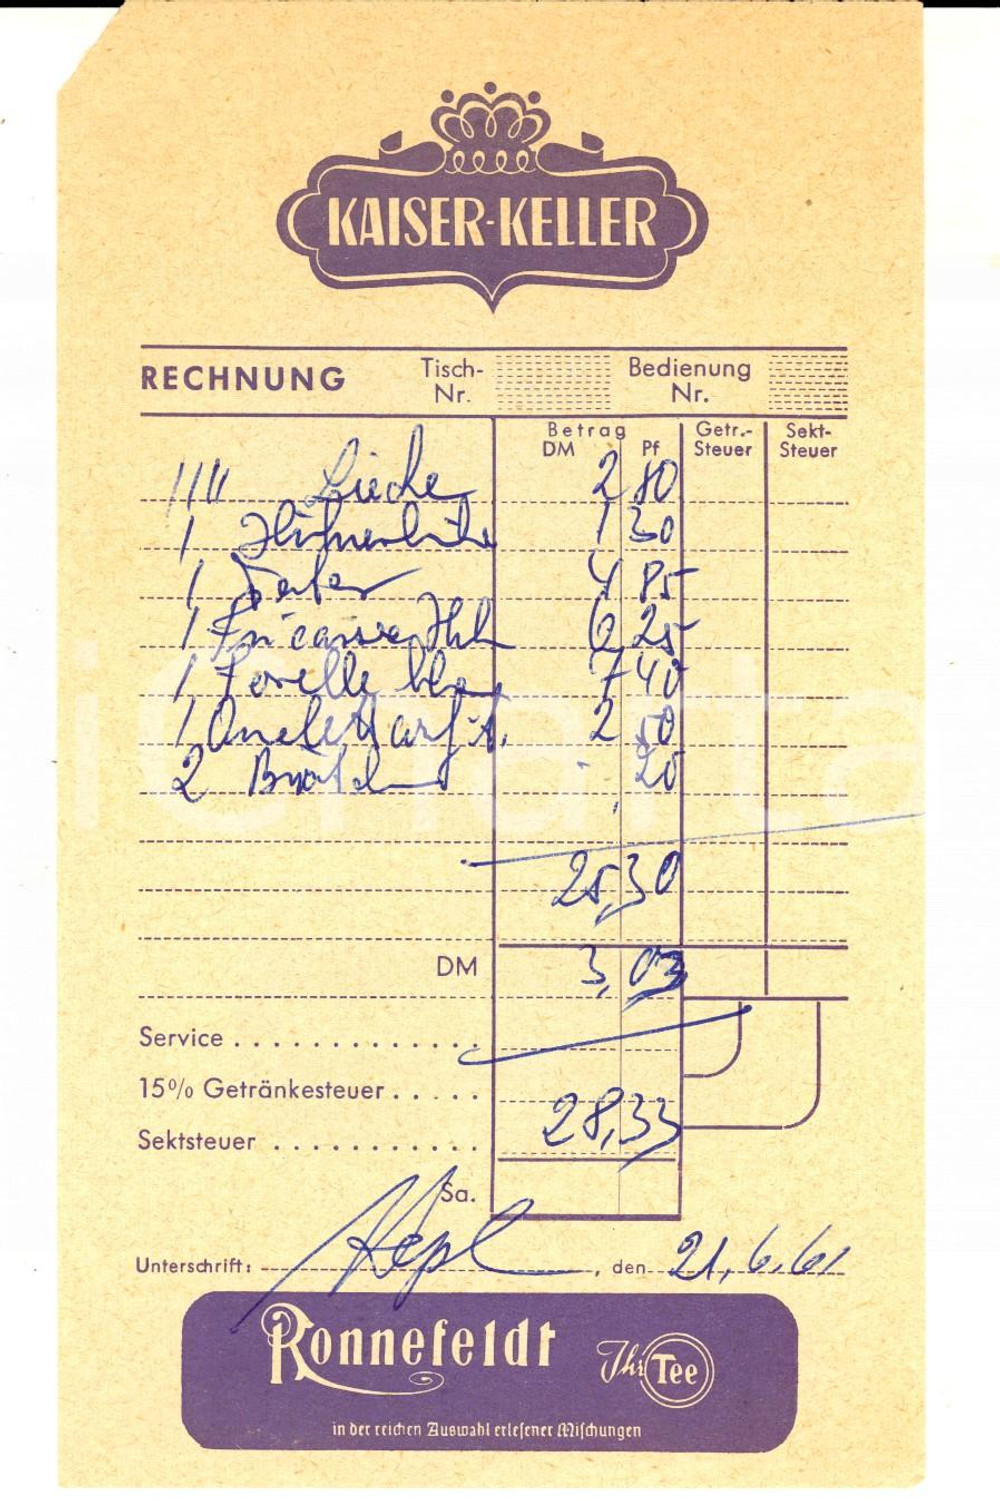 KAISER-KELLER
RECHNUNG Tisch-Nr. Bedienung Nr.
Betrag DM Pf Getr.-Steuer Sekt-Steuer
1111 2 80
1 1 30
1 4 85
1 Fricassee 6 25
1 Forelle blau 7 40
1 2 50
2 20
25,30
DM 3,03
Service . . . . . . . . . . . . .
15% Getränkesteuer . . . . .
28,33
Sektsteuer . . . . . . . . . . .
Sa.
Unterschrift: , den 21.6.61
Ronnefeldt Ihr Tee
in der reichen Auswahl erlesener Mischungen